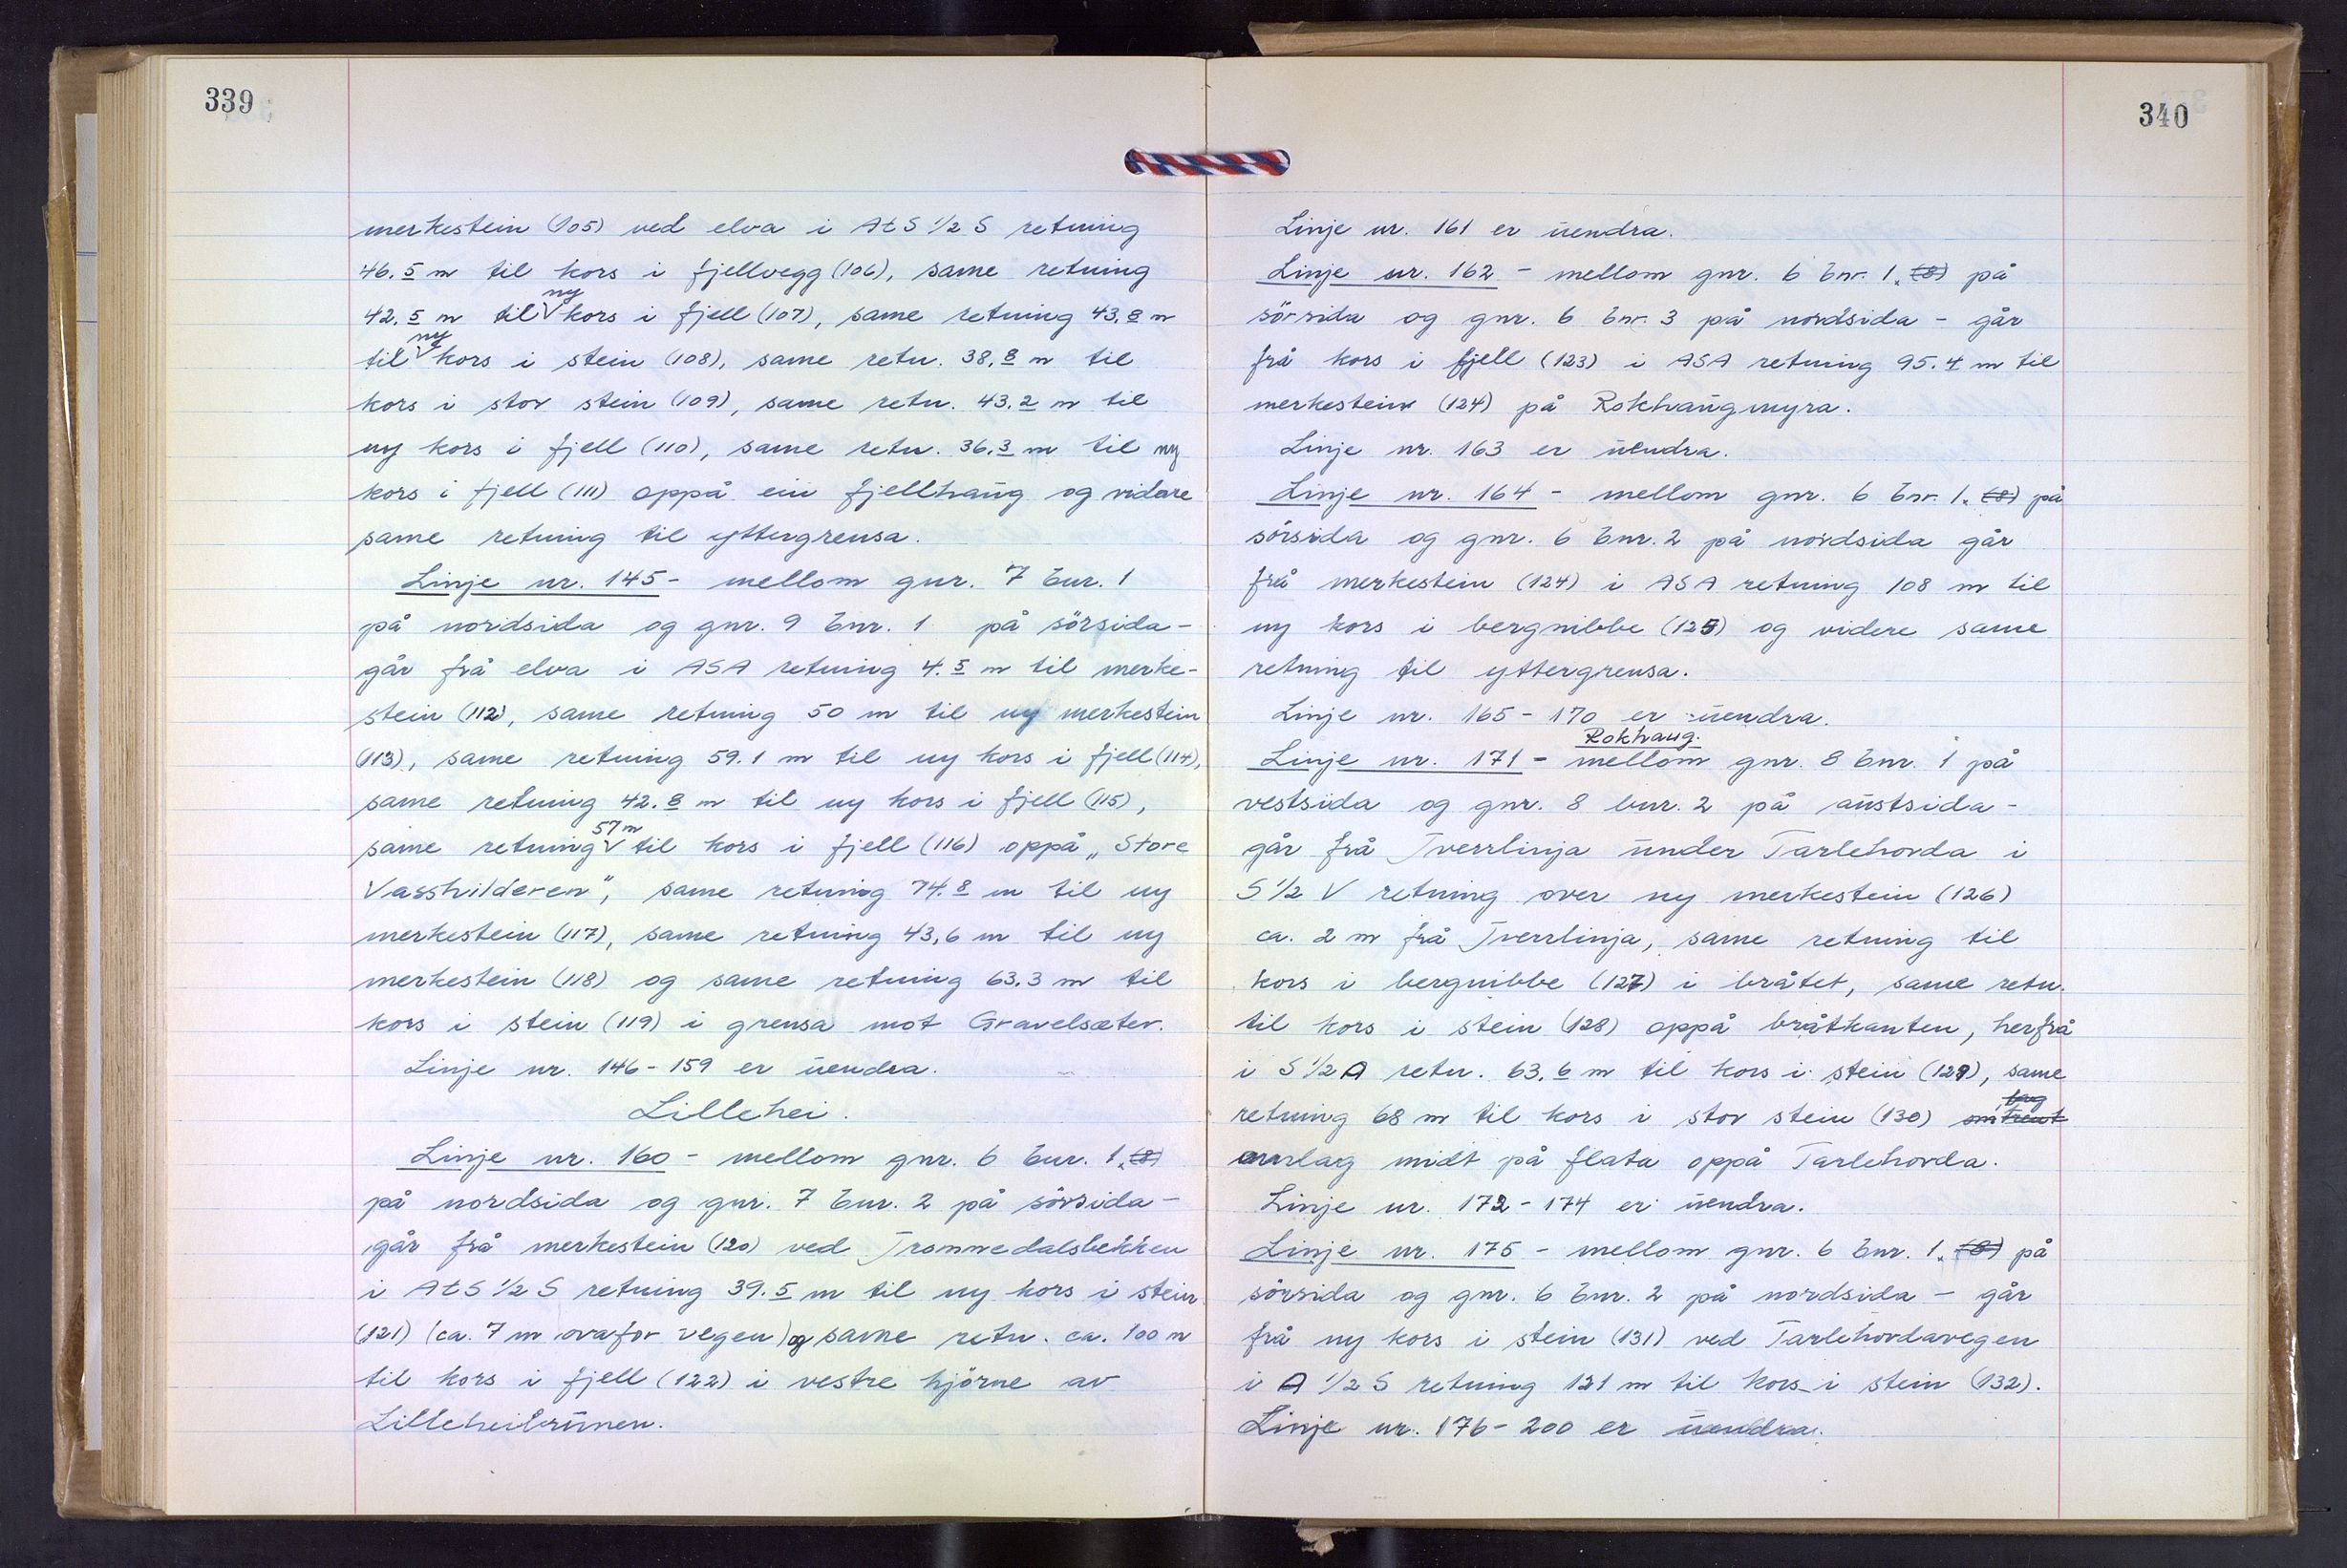 339
merkestein (105) ved elva i AtS 1/2 S retning
46.5 m til kors i fjellvegg (106), same retning
42.5 m til ny kors i fjell (107), same retning 43.8 m
til ny kors i stein (108), same retn. 38.8 m til
kors i stor stein (109), same retn. 43.2 m til
ny kors i fjell (110), same retn. 36.3 m til ny
kors i fjell (111) oppå ein fjellhaug og vidare
same retning til yttergrensa.
Linje nr. 145 - mellom gnr. 7 bnr. 1
på nordsida og gnr. 9 bnr. 1 på sörsida -
går frå elva i ASA retning 4.5 m til merke-
stein (112), same retning 50 m til ny merkestein
(113), same retning 59.1 m til ny kors i fjell (114),
same retning 42.8 m til ny kors i fjell (115),
same retning 57 m til kors i fjell (116) oppå „Store
Vasshilderen", same retning 74.8 m til ny
merkestein (117), same retning 43,6 m til ny
merkestein (118) og same retning 63.3 m til
kors i stein (119) i grensa mot Gravelsæter.
Linje nr. 146 - 159 er uendra.
Lillehei.
Linje nr. 160 - mellom gnr. 6 bnr. 1. (8)
på nordsida og gnr. 7 bnr. 2 på sörsida -
går frå merkestein (120) ved Trommedalsbekken
i AtS 1/2 S retning 39.5 m til ny kors i stein
(121) (ca. 7 m ovafor vegen) og same retn. ca. 100 m
til kors i fjell (122) i vestre hjörne av
Lilleheibrunen.
340
Linje nr. 161 er uendra.
Linje nr. 162 - mellom gnr. 6 bnr. 1. (8) på
sörsida og gnr. 6 bnr. 3 på nordsida - går
frå kors i fjell (123) i ASA retning 95.4 m til
merkestein (124) på Rokhaugmyra.
Linje nr. 163 er uendra.
Linje nr. 164 - mellom gnr. 6 bnr. 1. (8) på
sörsida og gnr. 6 bnr. 2 på nordsida går
frå merkestein (124) i ASA retning 108 m til
ny kors i bergnibbe (125) og videre same
retning til yttergrensa.
Linje nr. 165 - 170 er uendra.
Rokhaug.
Linje nr. 171 - mellom gnr. 8 bnr. 1 på
vestsida og gnr. 8 bnr. 2 på austsida -
går frå Tverrlinja under Tarlehovda i
S 1/2 V retning over ny merkestein (126)
ca. 2 m frå Tverrlinja, same retning til
kors i bergnibbe (127) i bråtet, same retn.
til kors i stein (128) oppå bråtkanten, herfrå
i S 1/2 A retn. 63.6 m til kors i stein (129), same
retning 68 m til kors i stor stein (130) omtrent
umlag midt på flata oppå Tarlehovda.
Linje nr. 172 - 174 er uendra.
Linje nr. 175 - mellom gnr. 6 bnr. 1. (8) på
sörsida og gnr. 6 bnr. 2 på nordsida - går
frå ny kors i stein (131) ved Tarlehovdavegen
i A 1/2 S retning 121 m til kors i stein (132).
Linje nr. 176 - 200 er uendra.